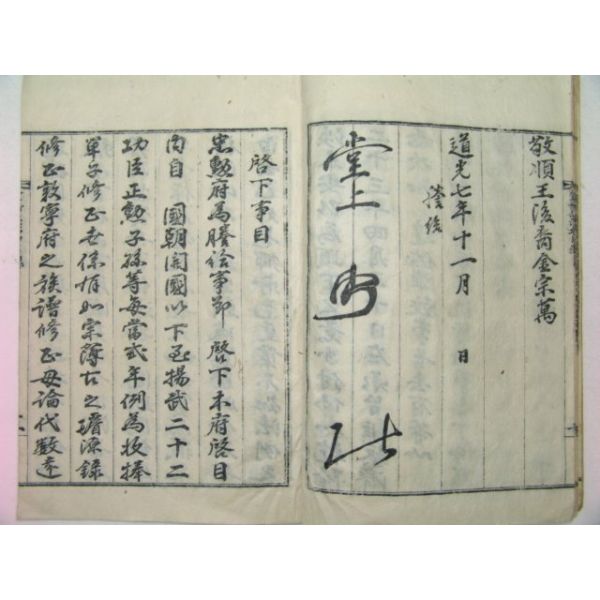 敬順王後裔金宗萬
道光七年十一月 日
謄給
堂上
啓下事目
忠勳府爲謄給事節 啓下本府啓目
內自 國朝開國以下至揚武二十二
功臣正勳子孫等每當式年例爲收捧
單子修正世係有如宗簿寺之璿源錄
修正敦寧府之族譜修正毋論代數遠